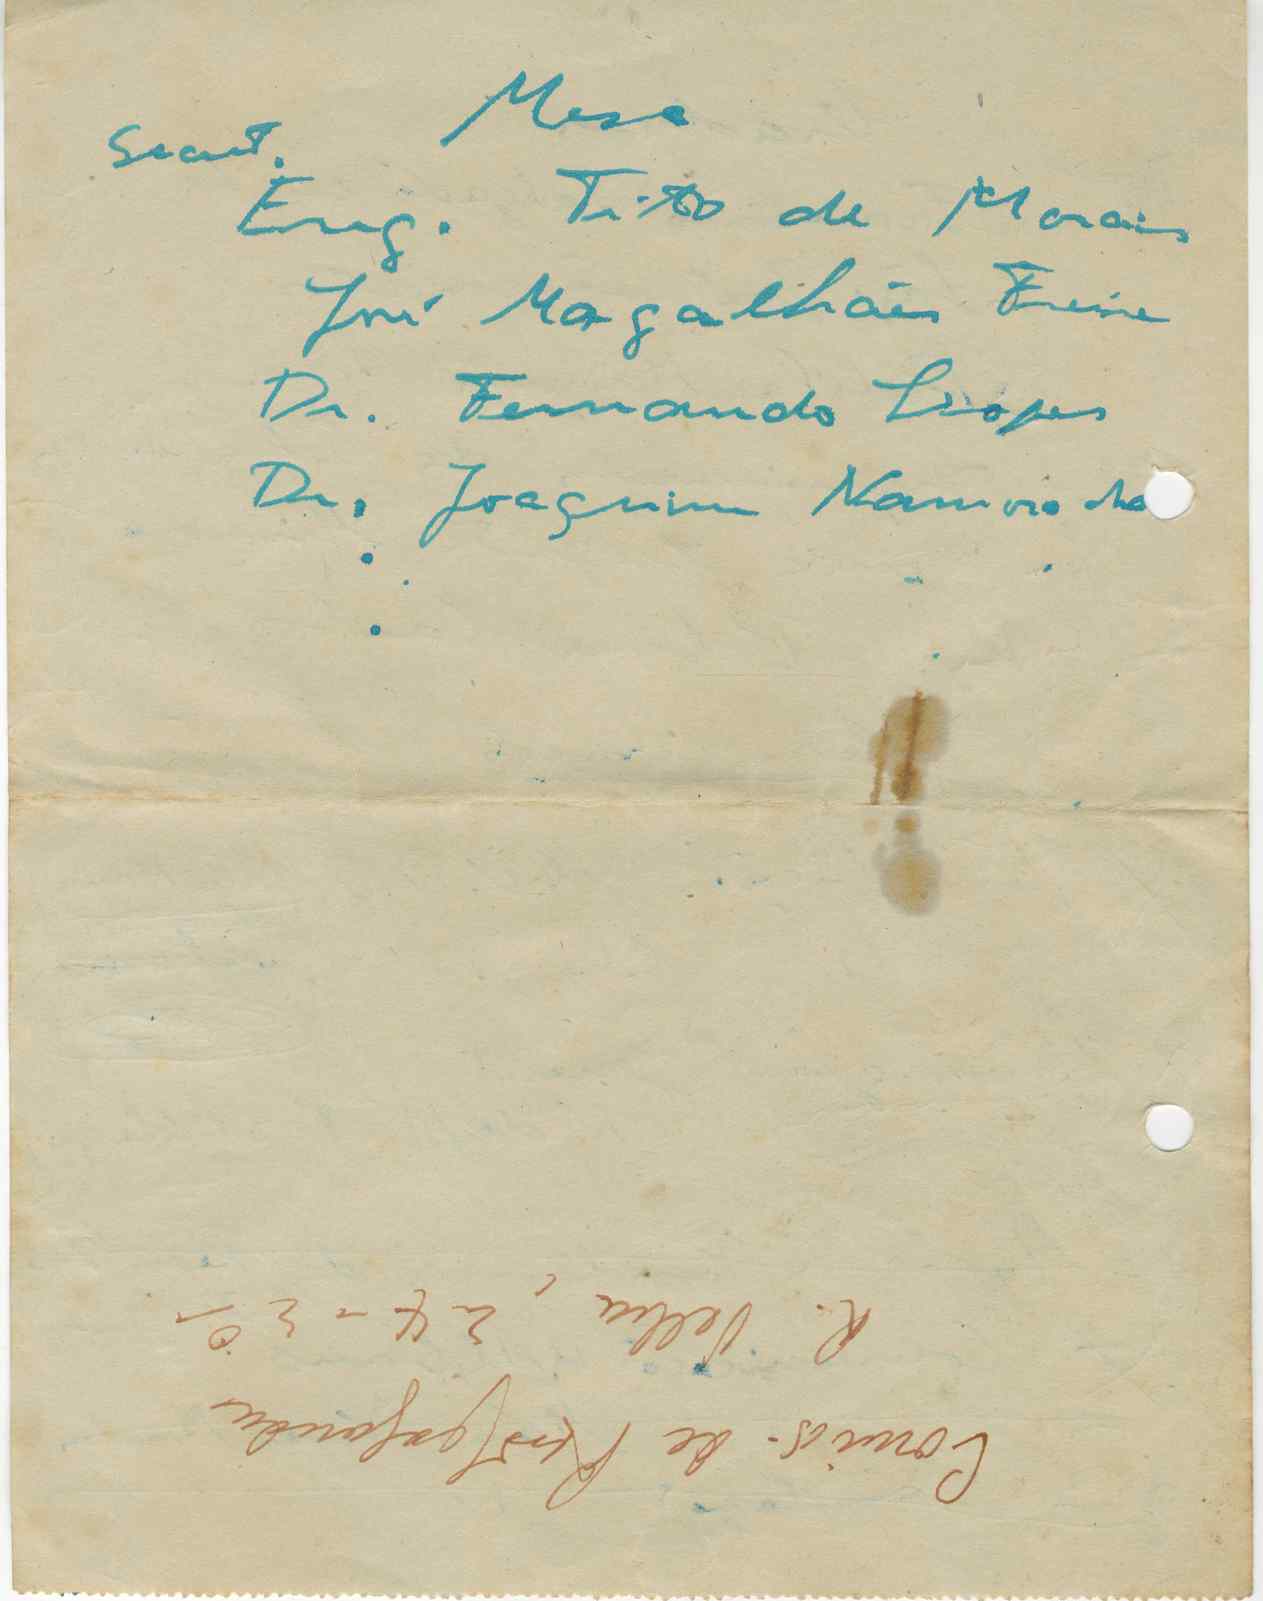 Mesa
Secret.
Eng. Tito de Morais
José Magalhães Freire
Dr. Fernando Lopes
Dr. Joaquim Namorado
Comis. de Propaganda
R. Velha, 24 - 3º